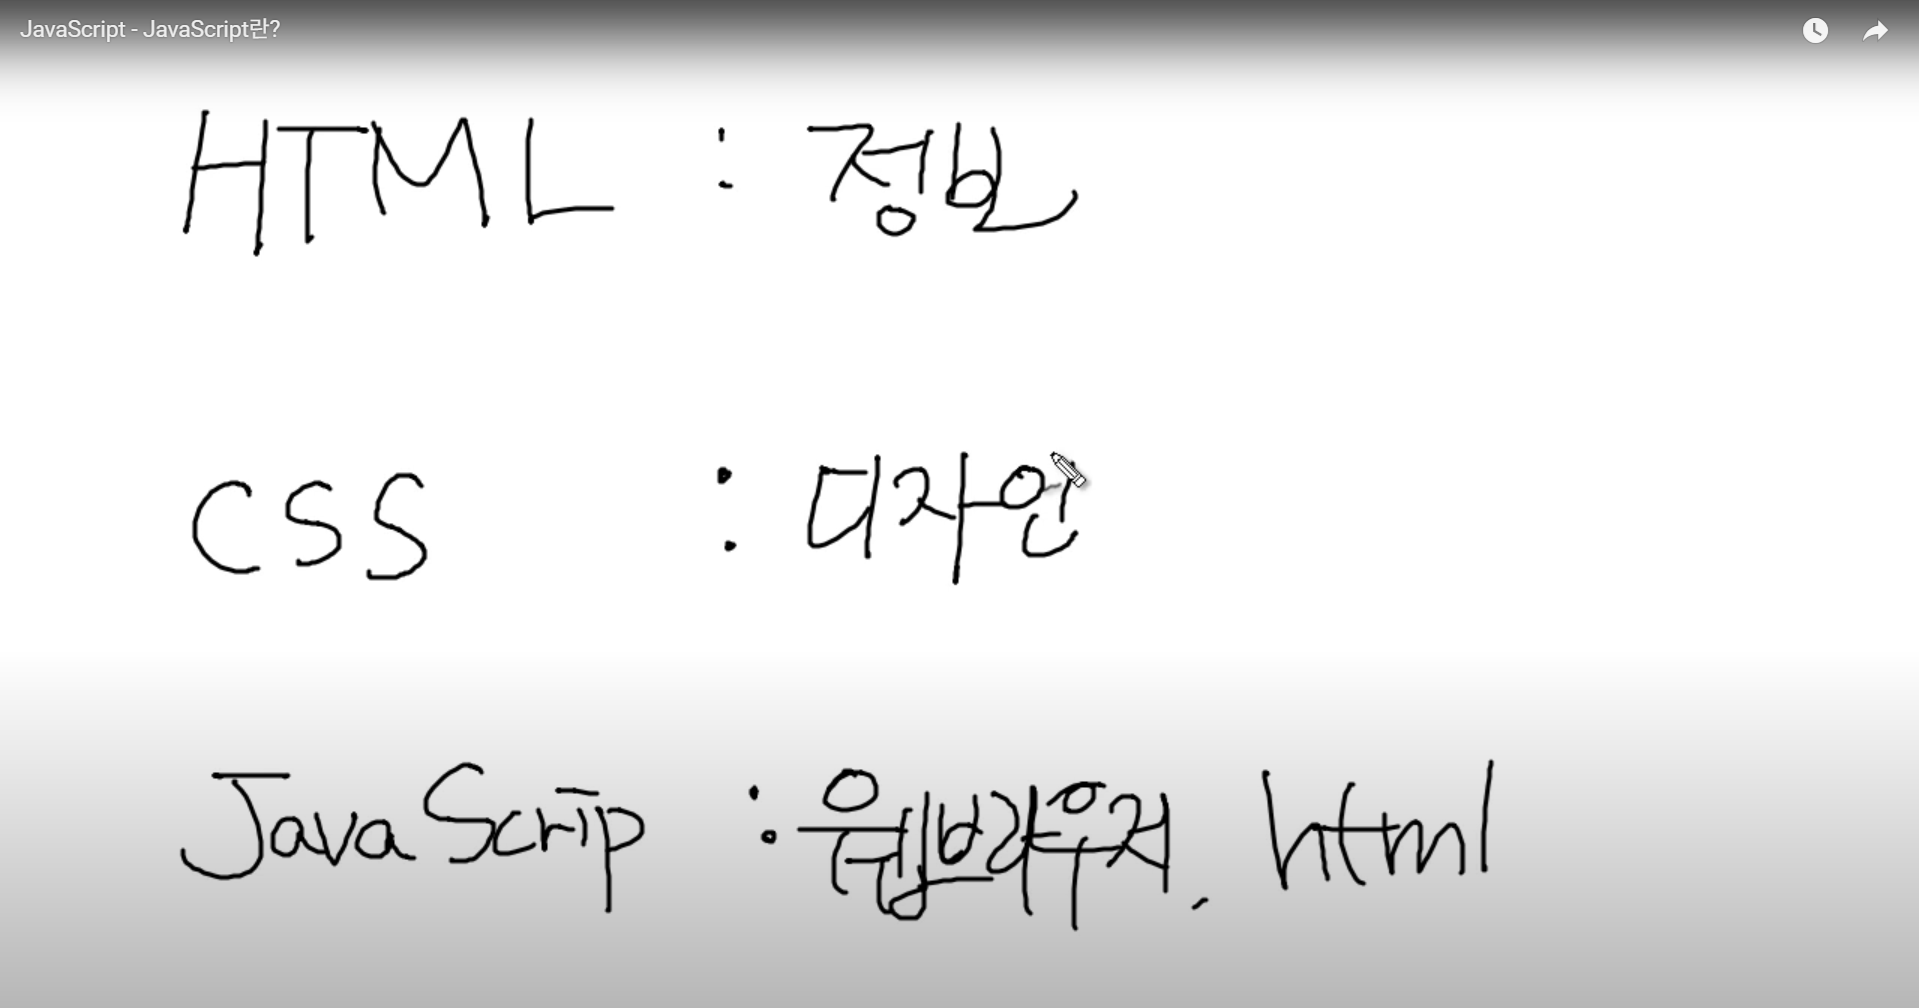 JavaScript - JavaScript란?
HTML : 정보
CSS : 디자인
JavaScrip : 웹브라우저, html